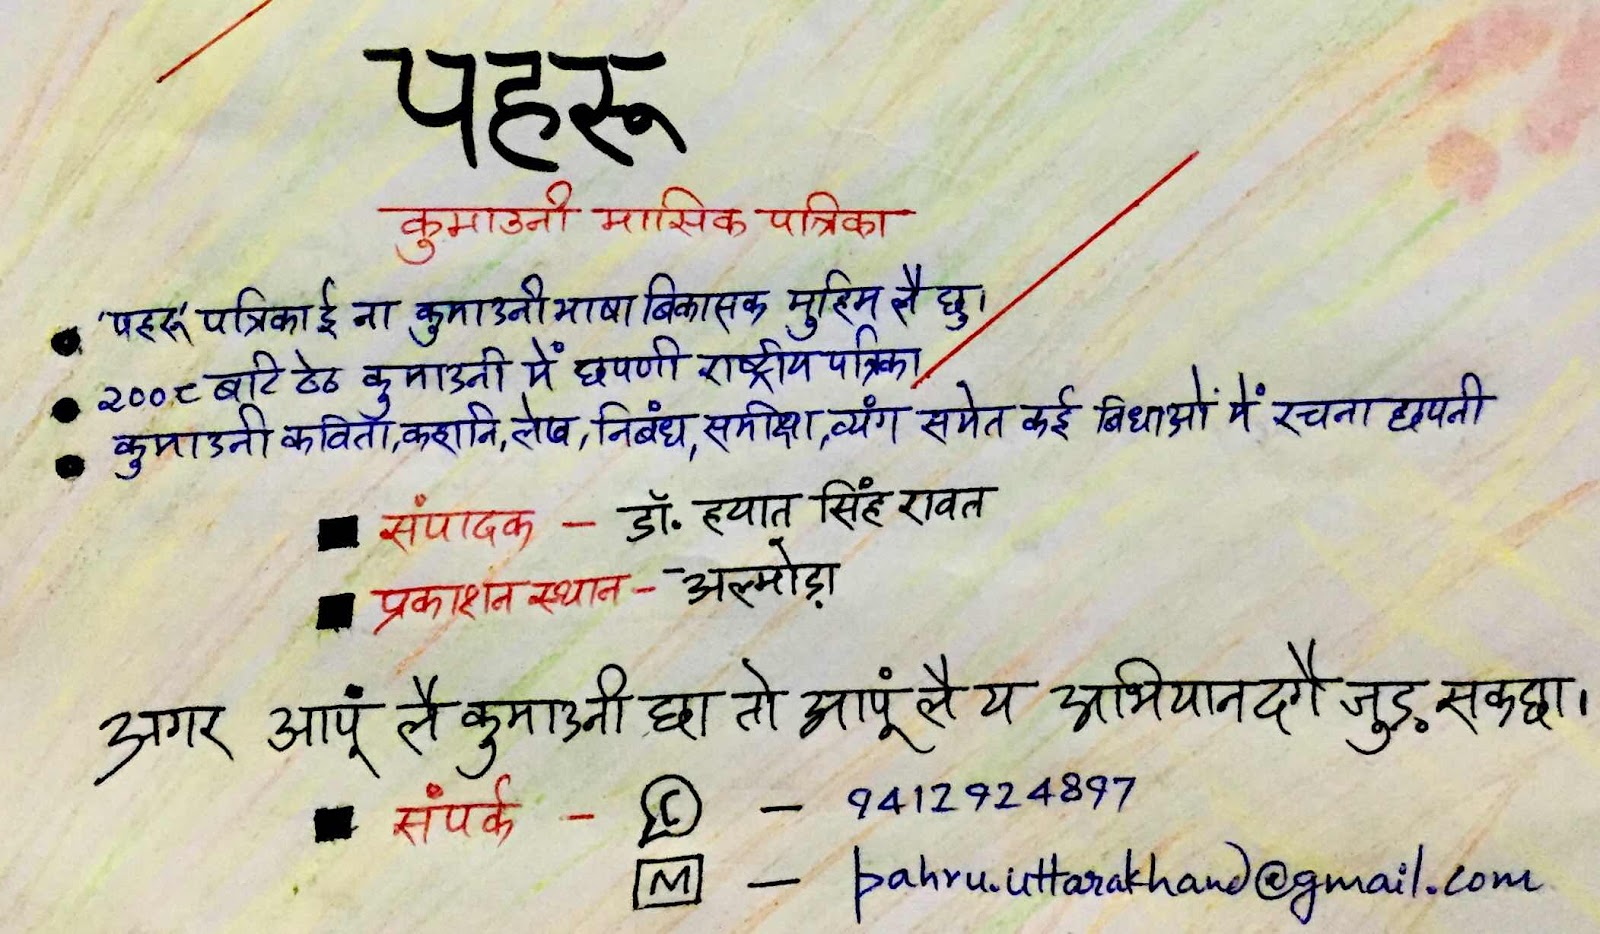 पहरू
कुमाउनी मासिक पत्रिका
• 'पहरू' पत्रिका ई ना कुमाउनी भाषा बिकासक मुहिम लै छु।
• २००८ बटि ठेठ कुमाउनी में छपणी राष्ट्रीय पत्रिका
• कुमाउनी कविता, कहानि, लेख, निबंध, समीक्षा, व्यंग समेत कई बिधाओं में रचना छपनी
■ संपादक - डॉ. हयात सिंह रावत
■ प्रकाशन स्थान - अल्मोड़ा
अगर आपूं लै कुमाउनी छा तो आपूं लै य अभियान दगै जुड़ सकछा।
■ संपर्क - - 9412924897
M - pahru.uttarakhand@gmail.com